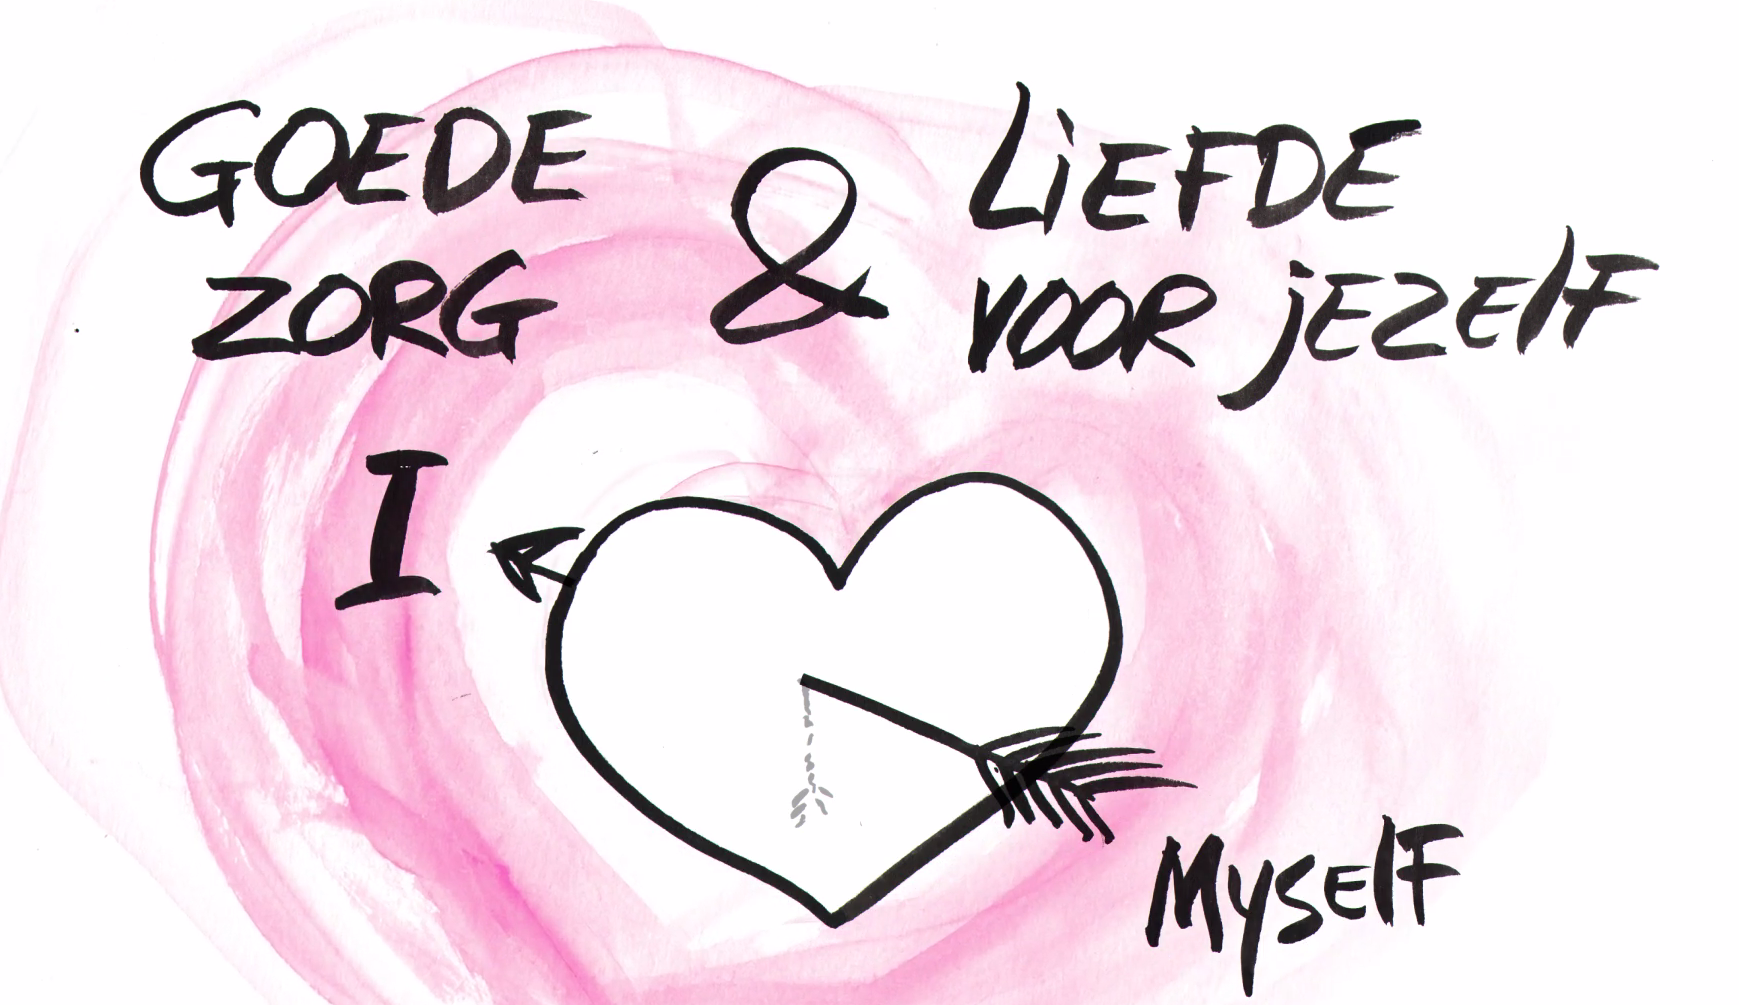 GOEDE
ZORG
&
LiEFDE
VOOR jEZElF
I
MysElF